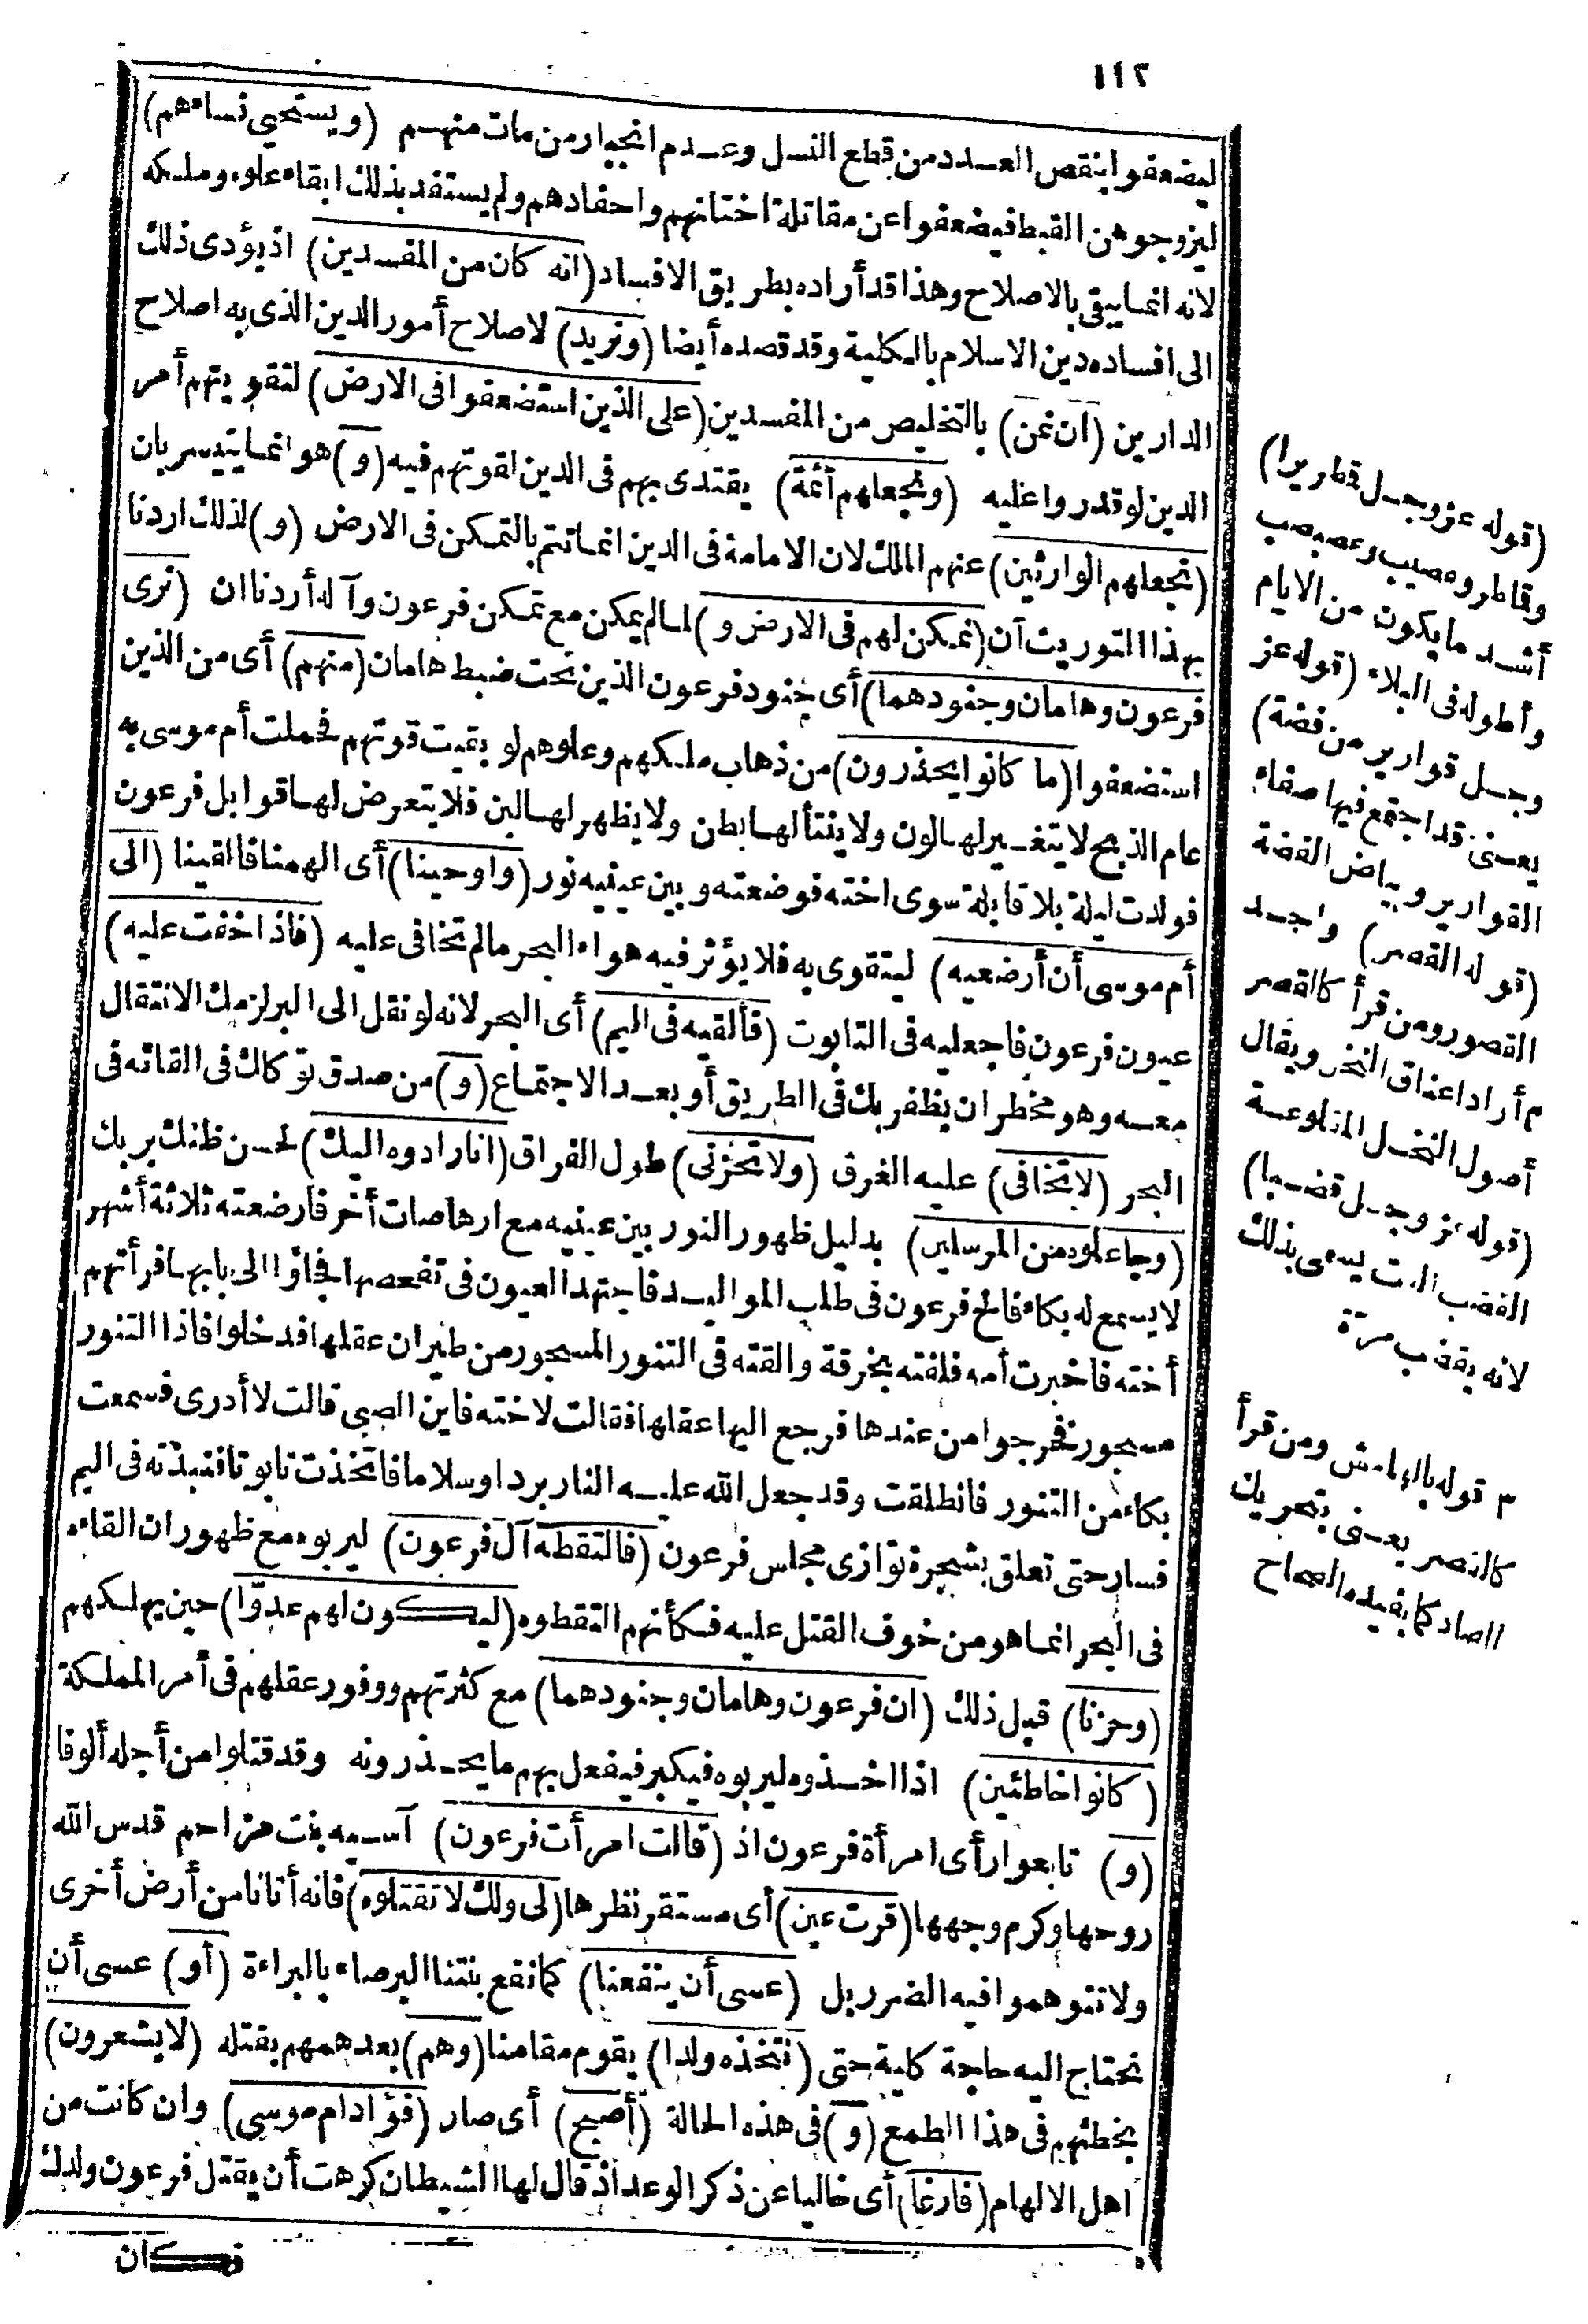 ١١٢
ليضعفوا بنقص العدد من قطع النسل وعدم انجبار من مات منهم (ويستحيي نساءهم)
ليزوجوهن القبط فيضعفوا عن مقاتلة اختانهم واحفادهم ولم يستفد بذلك ابقاء علوه وملكه
لانه انما يبقى بالاصلاح وهذا قد أراده بطريق الافساد (انه كان من المفسدين) اذ يؤدى ذلك
الى افساده دين الاسلام بالكلية وقد قصده أيضا (ونريد) لاصلاح أمور الدين الذى به اصلاح
الدارين (ان نمن) بالتخليص من المفسدين (على الذين استضعفوا فى الارض) لتقويتهم أمر
الدين لو قدروا عليه (ونجعلهم أئمة) يقتدى بهم فى الدين لقوتهم فيه (و) هو انما يتيسر بان
(نجعلهم الوارثين) عنهم الملك لان الامامة فى الدين انما تتم بالتمكن فى الارض (و) لذلك اردنا
بهذا التوريث أن (نمكن لهم فى الارض و) لما لم يمكن مع تمكن فرعون وآله أردنا ان (نرى
فرعون وهامان وجنودهما) أى جنود فرعون الذين تحت ضبط هامان (منهم) أى من الذين
استضعفوا (ما كانوا يحذرون) من ذهاب ملكهم وعلوهم لو بقيت قوتهم فحملت أم موسى به
عام الذبح لا يتغير لها لون ولا ينتأ لها بطن ولا يظهر لها لبن فلا يتعرض لها قوابل فرعون
فولدت ليلة بلا قابلة سوى اخته فوضعته وبين عينيه نور (واوحينا) أى الهمنا فالقينا (الى
أم موسى أن أرضعيه) ليتقوى به فلا يؤثر فيه هواء البحر مالم تخافى عليه (فاذا خفت عليه)
عيون فرعون فاجعليه فى التابوت (فألقيه فى اليم) أى البحر لانه لو نقل الى البر لزمك الانتقال
معه وهو مخطر ان يظفر بك فى الطريق أو بعد الاجتماع (و) من صدق توكلك فى القائه فى
البحر (لا تخافى) عليه الغرق (ولا تحزنى) طول الفراق (انا رادوه اليك) لحسن ظنك بربك
(وجاعلوه من المرسلين) بدليل ظهور النور بين عينيه مع ارهاصات أخر فارضعته ثلاثة أشهر
لا يسمع له بكاء فالح فرعون فى طلب المواليد فاجتهد العيون فى تفحصها فجاؤا الى بابها فرأتهم
أخته فاخبرت أمه فلفته بخرقة والقته فى التنور المسجور من طيران عقلها فدخلوا فاذا التنور
مسجور فخرجوا من عندها فرجع اليها عقلها فقالت لاخته فاين الصبى قالت لا أدرى فسمعت
بكاء من التنور فانطلقت وقد جعل الله عليه النار بردا وسلاما فاتخذت تابوتا فنبذته فى اليم
فسار حتى تعلق بشجرة توازى مجلس فرعون (فالتقطه آل فرعون) ليربوه مع ظهور ان القاءه
فى البحر انما هو من خوف القتل عليه فكأنهم التقطوه (ليكون لهم عدوّا) حين يهلكهم
(وحزنا) قبل ذلك (ان فرعون وهامان وجنودهما) مع كثرتهم ووفور عقلهم فى أمر المملكة
(كانوا خاطئين) اذا اخذوه ليربوه فيكبر فيفعل بهم ما يحذرونه وقد قتلوا من أجله ألوفا
(و) تابعوا رأى امرأة فرعون اذ (قالت امرأت فرعون) آسيه بنت مزاحم قدس الله
روحها وكرم وجهها (قرت عين) أى مستقر نظرها (لى ولك لا تقتلوه) فانه أتانا من أرض أخرى
ولا تتوهموا فيه الضرر بل (عسى أن ينفعنا) كما نفع بنتنا البرصاء بالبراءة (أو) عسى أن
نحتاج اليه حاجة كلية حتى (نتخذه ولدا) يقوم مقامنا (وهم) بعد همهم بقتله (لا يشعرون)
بخطئهم فى هذا الطمع (و) فى هذه الحالة (أصبح) أى صار (فؤاد ام موسى) وان كانت من
اهل الالهام (فارغا) أى خاليا عن ذكر الوعد اذ قال لها الشيطان كرهت أن يقتل فرعون ولدك
فكان
(قوله عز وجل قطريرا)
وقماطر وعصيب وعصبصب
أشد ما يكون من الايام
وأطوله فى البلاء (قوله عز
وجل قوارير من فضة)
يعنى قد اجتمع فيها صفاء
القوارير وبياض الفضة
(قوله القصر) واحد
القصور ومن قرأ كالقصر
٣ أراد اعناق النخل ويقال
أصول النخل المقلوعة
(قوله عز وجل قضبا)
القضب القت يسمى بذلك
لانه يقضب مرّة
٣ قوله بالهامش ومن قرأ
كالقصر يعنى بتحريك
الصاد كما يفيده الصحاح